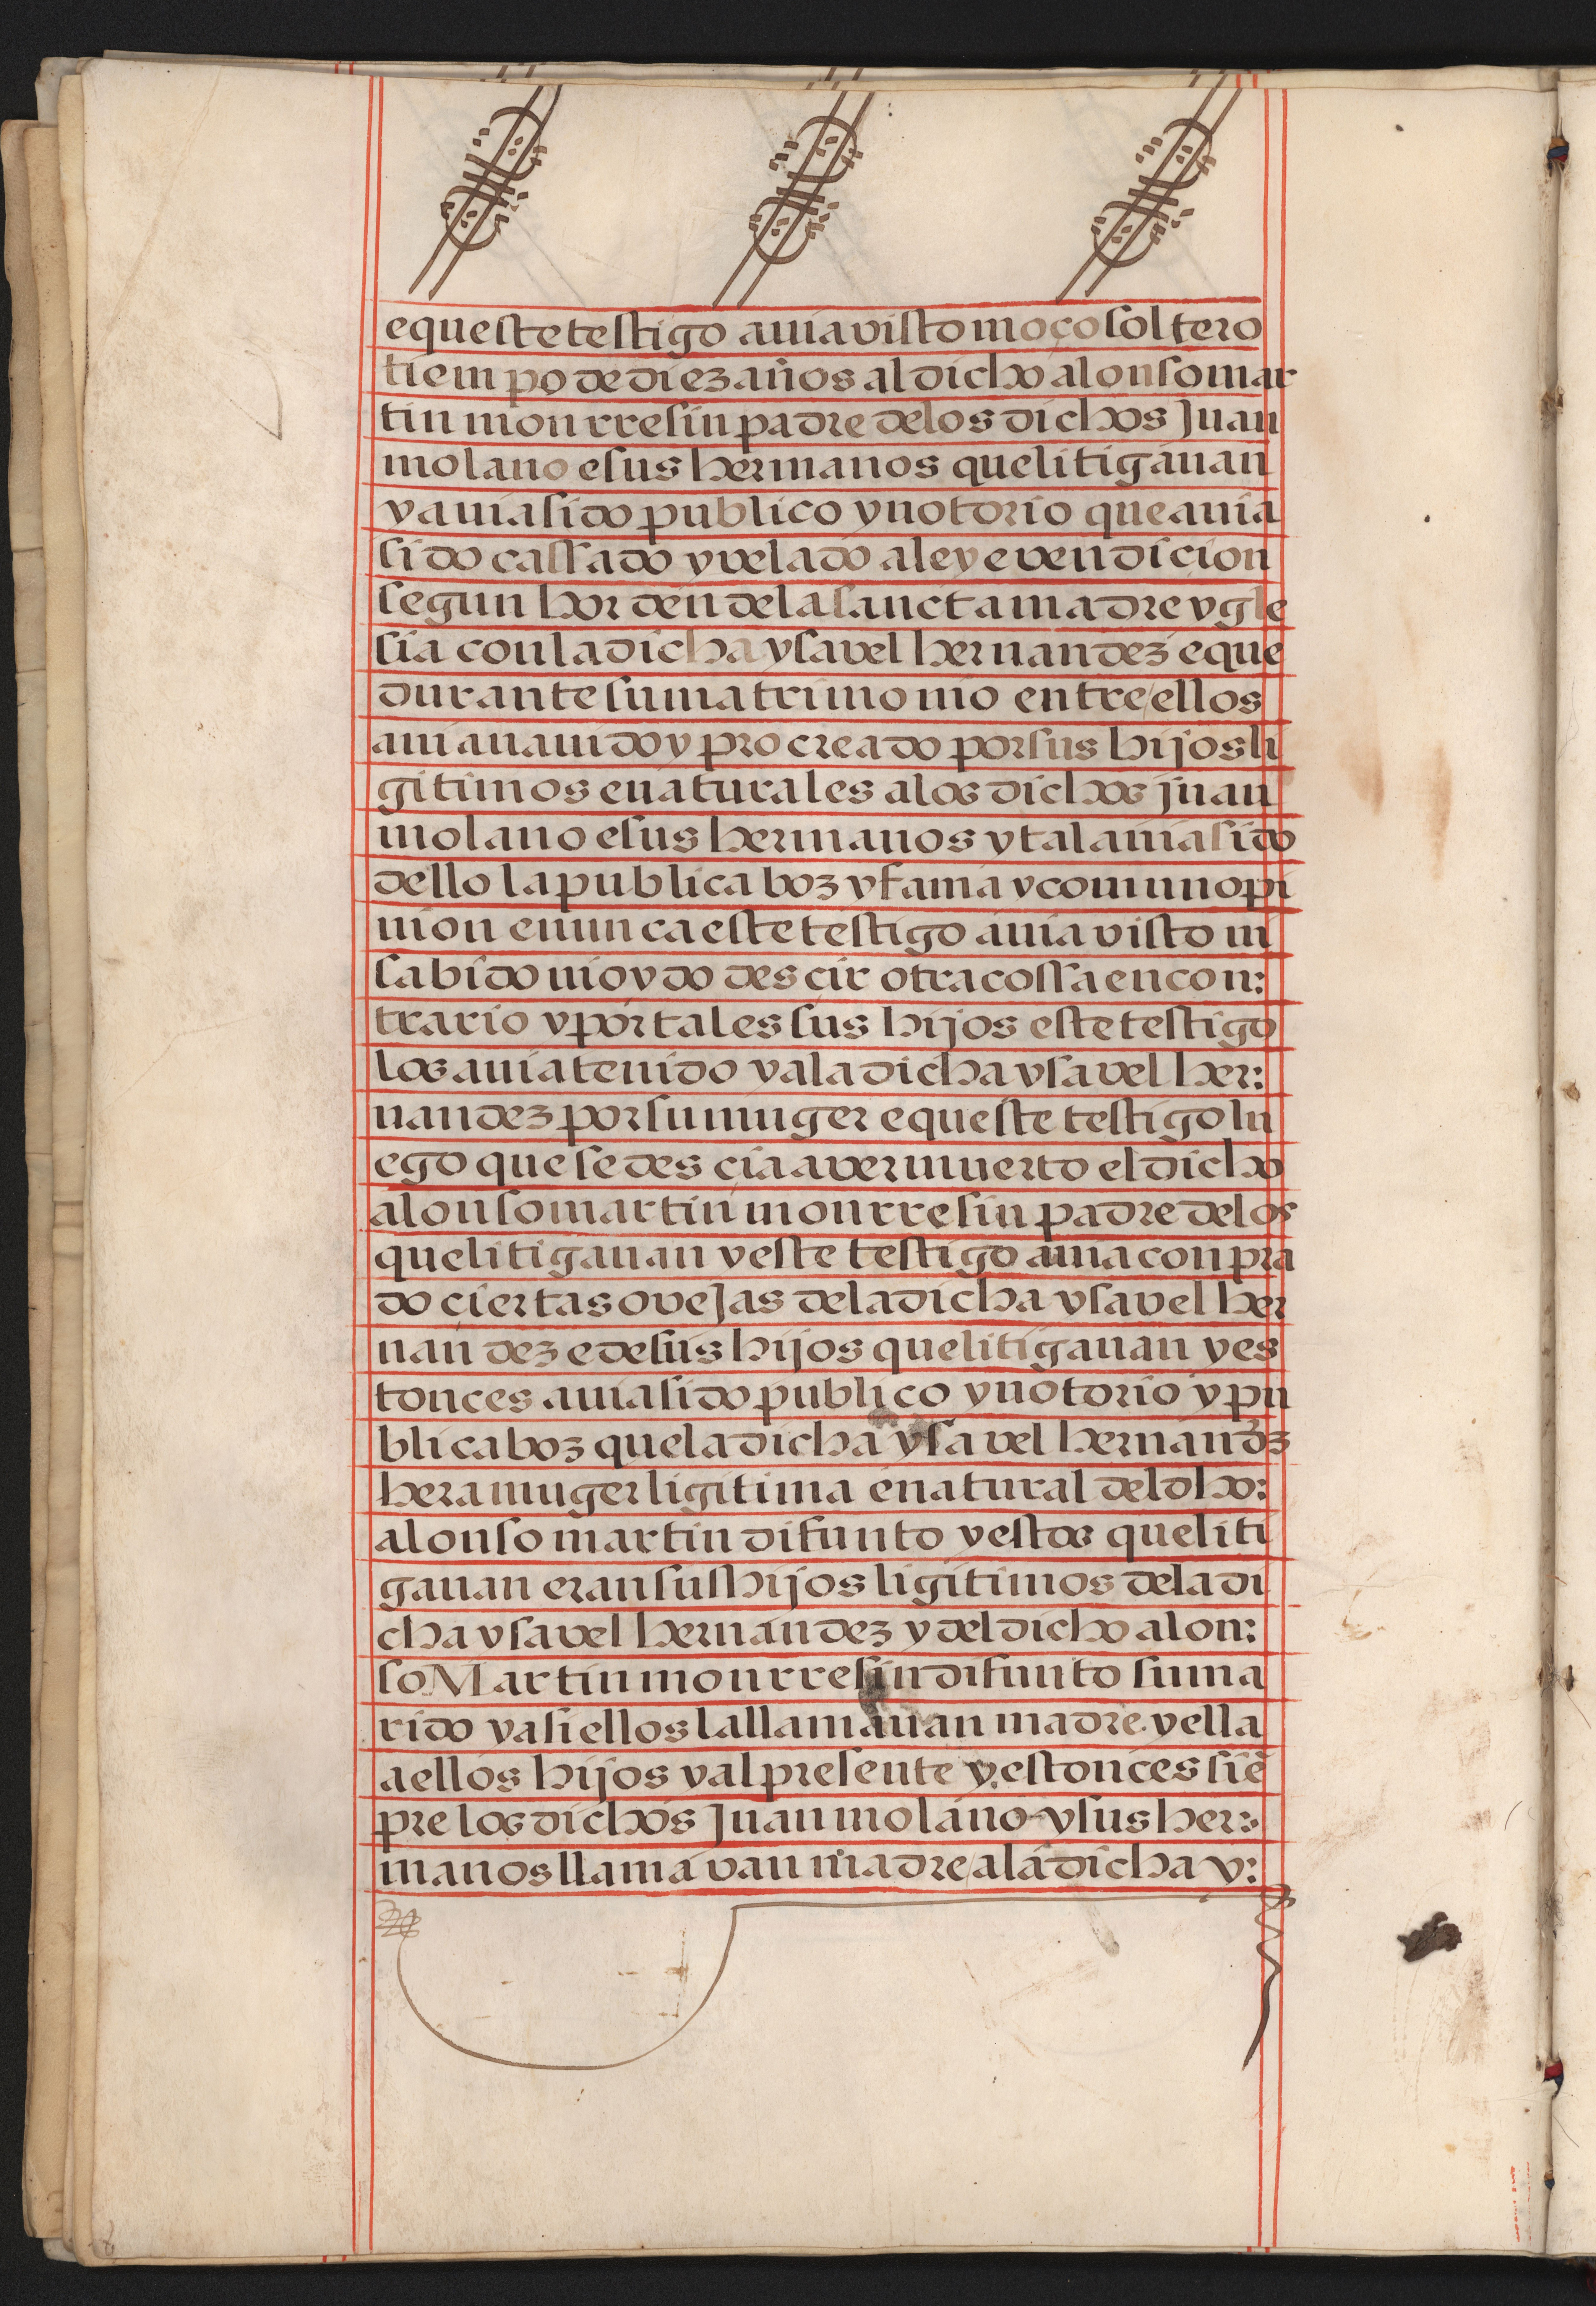 e que este testigo auia visto moço soltero
tiempo de diez años al dicho alonso mar
tin monrresin padre de los dichos Juan
molano e sus hermanos que litigauan
y auia sido publico y notorio que auia
sido cassado y velado a ley e vendicion
segun horden de la sancta madre ygle
sia con la dicha ysavel hernandez e que
durante su matrimonio entre ellos
auian auido y procreado por sus hijos li
gitimos e naturales a los dichos juan
molano e sus hermanos y tal auia sido
dello la publica boz y fama y comun opi
nion e nunca este testigo auia visto ni
sabido ni oydo descir otra cossa en con:
trario y por tales sus hijos este testigo
los auia tenido y a la dicha ysavel her:
nandez por su muger e que este testigo lu
ego que se descia aver muerto el dicho
alonso martin monrresin padre de los
que litigauan y este testigo auia conpra
do ciertas ovejas de la dicha ysavel her
nandez e de sus hijos que litigauan y es
tonces auia sido publico y notorio y pu
blica boz que la dicha ysavel hernandz
hera muger ligitima e natural del dho:
alonso martin difunto y estos que liti
gauan eran sus hijos ligitimos de la di
cha ysavel hernandez y del dicho alon:
so Martin monrresin difunto su ma
rido y asi ellos la llamauan madre y ella
a ellos hijos y al presente y estonces siē
pre los dichos Juan molano y sus her:
manos llamavan madre a la dicha y: